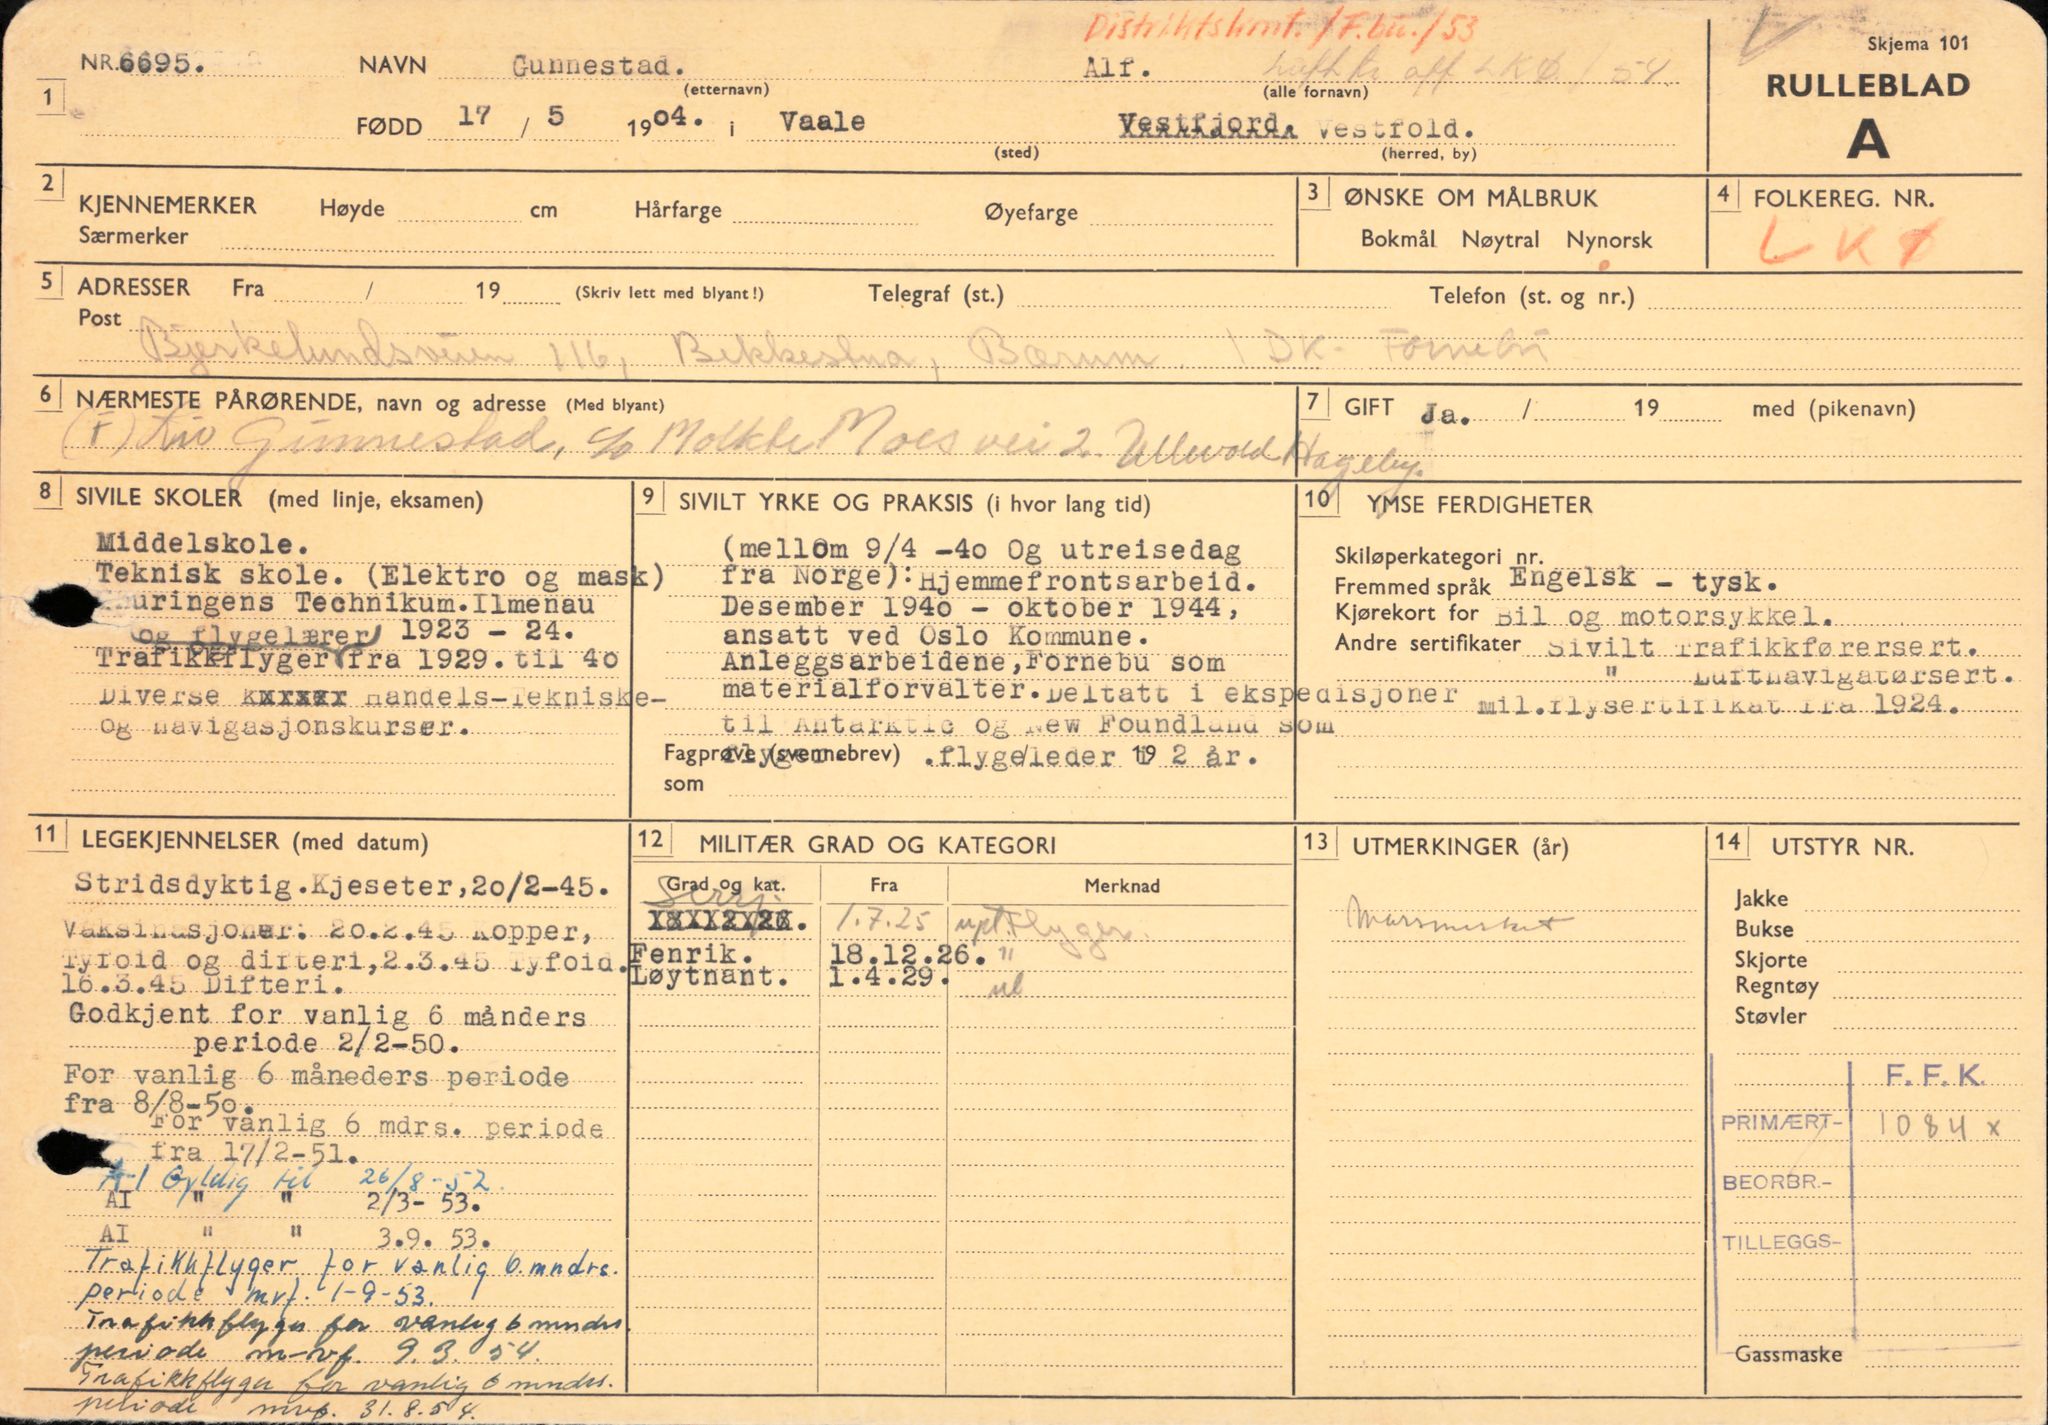 Distriktskont./F.bu./53
Skjema 101
NR. 6695. NAVN Gunnestad. Alf. LKØ / 54
(etternavn) (alle fornavn)
RULLEBLAD
A
1
FØDD 17 / 5 1904. i Vaale Vestfjord. Vestfold.
(sted) (herred, by)
2 KJENNEMERKER Høyde cm Hårfarge Øyefarge
Særmerker
3 ØNSKE OM MÅLBRUK
Bokmål Nøytral Nynorsk
4 FOLKEREG. NR.
LKØ
5 ADRESSER Fra / 19 (Skriv lett med blyant!) Telegraf (st.) Telefon (st. og nr.)
Post
Bjerkelundsveien 116, Bekkestua, Bærum. / DK- Fornebu
6 NÆRMESTE PÅRØRENDE, navn og adresse (Med blyant)
Gunnestad, c/o Moltke Moes vei 2. Ullevold Hageby.
7 GIFT Ja. / 19 med (pikenavn)
8 SIVILE SKOLER (med linje, eksamen)
Middelskole.
Teknisk skole. (Elektro og mask)
Thuringens Technikum. Ilmenau
(og flygelærer) 1923 - 24.
Trafikkflyger fra 1929. til 40
Diverse Handels-Tekniske-
og navigasjonskurser.
9 SIVILT YRKE OG PRAKSIS (i hvor lang tid)
(mellom 9/4 -40 Og utreisedag
fra Norge): Hjemmefrontsarbeid.
Desember 1940 - oktober 1944,
ansatt ved Oslo Kommune.
Anleggsarbeidene, Fornebu som
materialforvalter. Deltatt i ekspedisjoner
til Antarktic og New Foundland som
flyger. .flyge/leder i 2 år.
Fagprøve (svennebrev) 19
som
10 YMSE FERDIGHETER
Skiløperkategori nr.
Fremmed språk Engelsk - tysk.
Kjørekort for Bil og motorsykkel.
Andre sertifikater Sivilt Trafikkførersert.
" Luftnavigatørsert.
mil.flysertifikat fra 1924.
11 LEGEKJENNELSER (med datum)
Stridsdyktig. Kjeseter, 20/2-45.
Vaksinasjoner: 20.2.45 Kopper,
Tyfoid og difteri, 2.3.45 Tyfoid.
16.3.45 Difteri.
Godkjent for vanlig 6 månders
periode 2/2-50.
For vanlig 6 måneders periode
fra 8/8-50.
For vanlig 6 mdrs. periode
fra 17/2-51.
A-1 Gyldig til 26/8-52.
AI " " 2/3- 53.
AI " " 3.9. 53.
Trafikkflyger for vanlig 6.mndrs.
periode mvf. 1-9-53.
Trafikkflyger for vanlig 6 mndrs.
periode m-vf. 9.3.54.
Trafikkflyger for vanlig 6 mndrs.
periode mvf. 31.8.54.
12 MILITÆR GRAD OG KATEGORI
Grad og kat. Fra Merknad
Serrj. 1.7.25 vpl. Flyger.
Fenrik. 18.12.26. "
Løytnant. 1.4.29. vl
13 UTMERKINGER (år)
14 UTSTYR NR.
Jakke
Bukse
Skjorte
Regntøy
Støvler
F. F. K.
PRIMÆRT- 1084 x
BEORBR.-
TILLEGGS-
Gassmaske